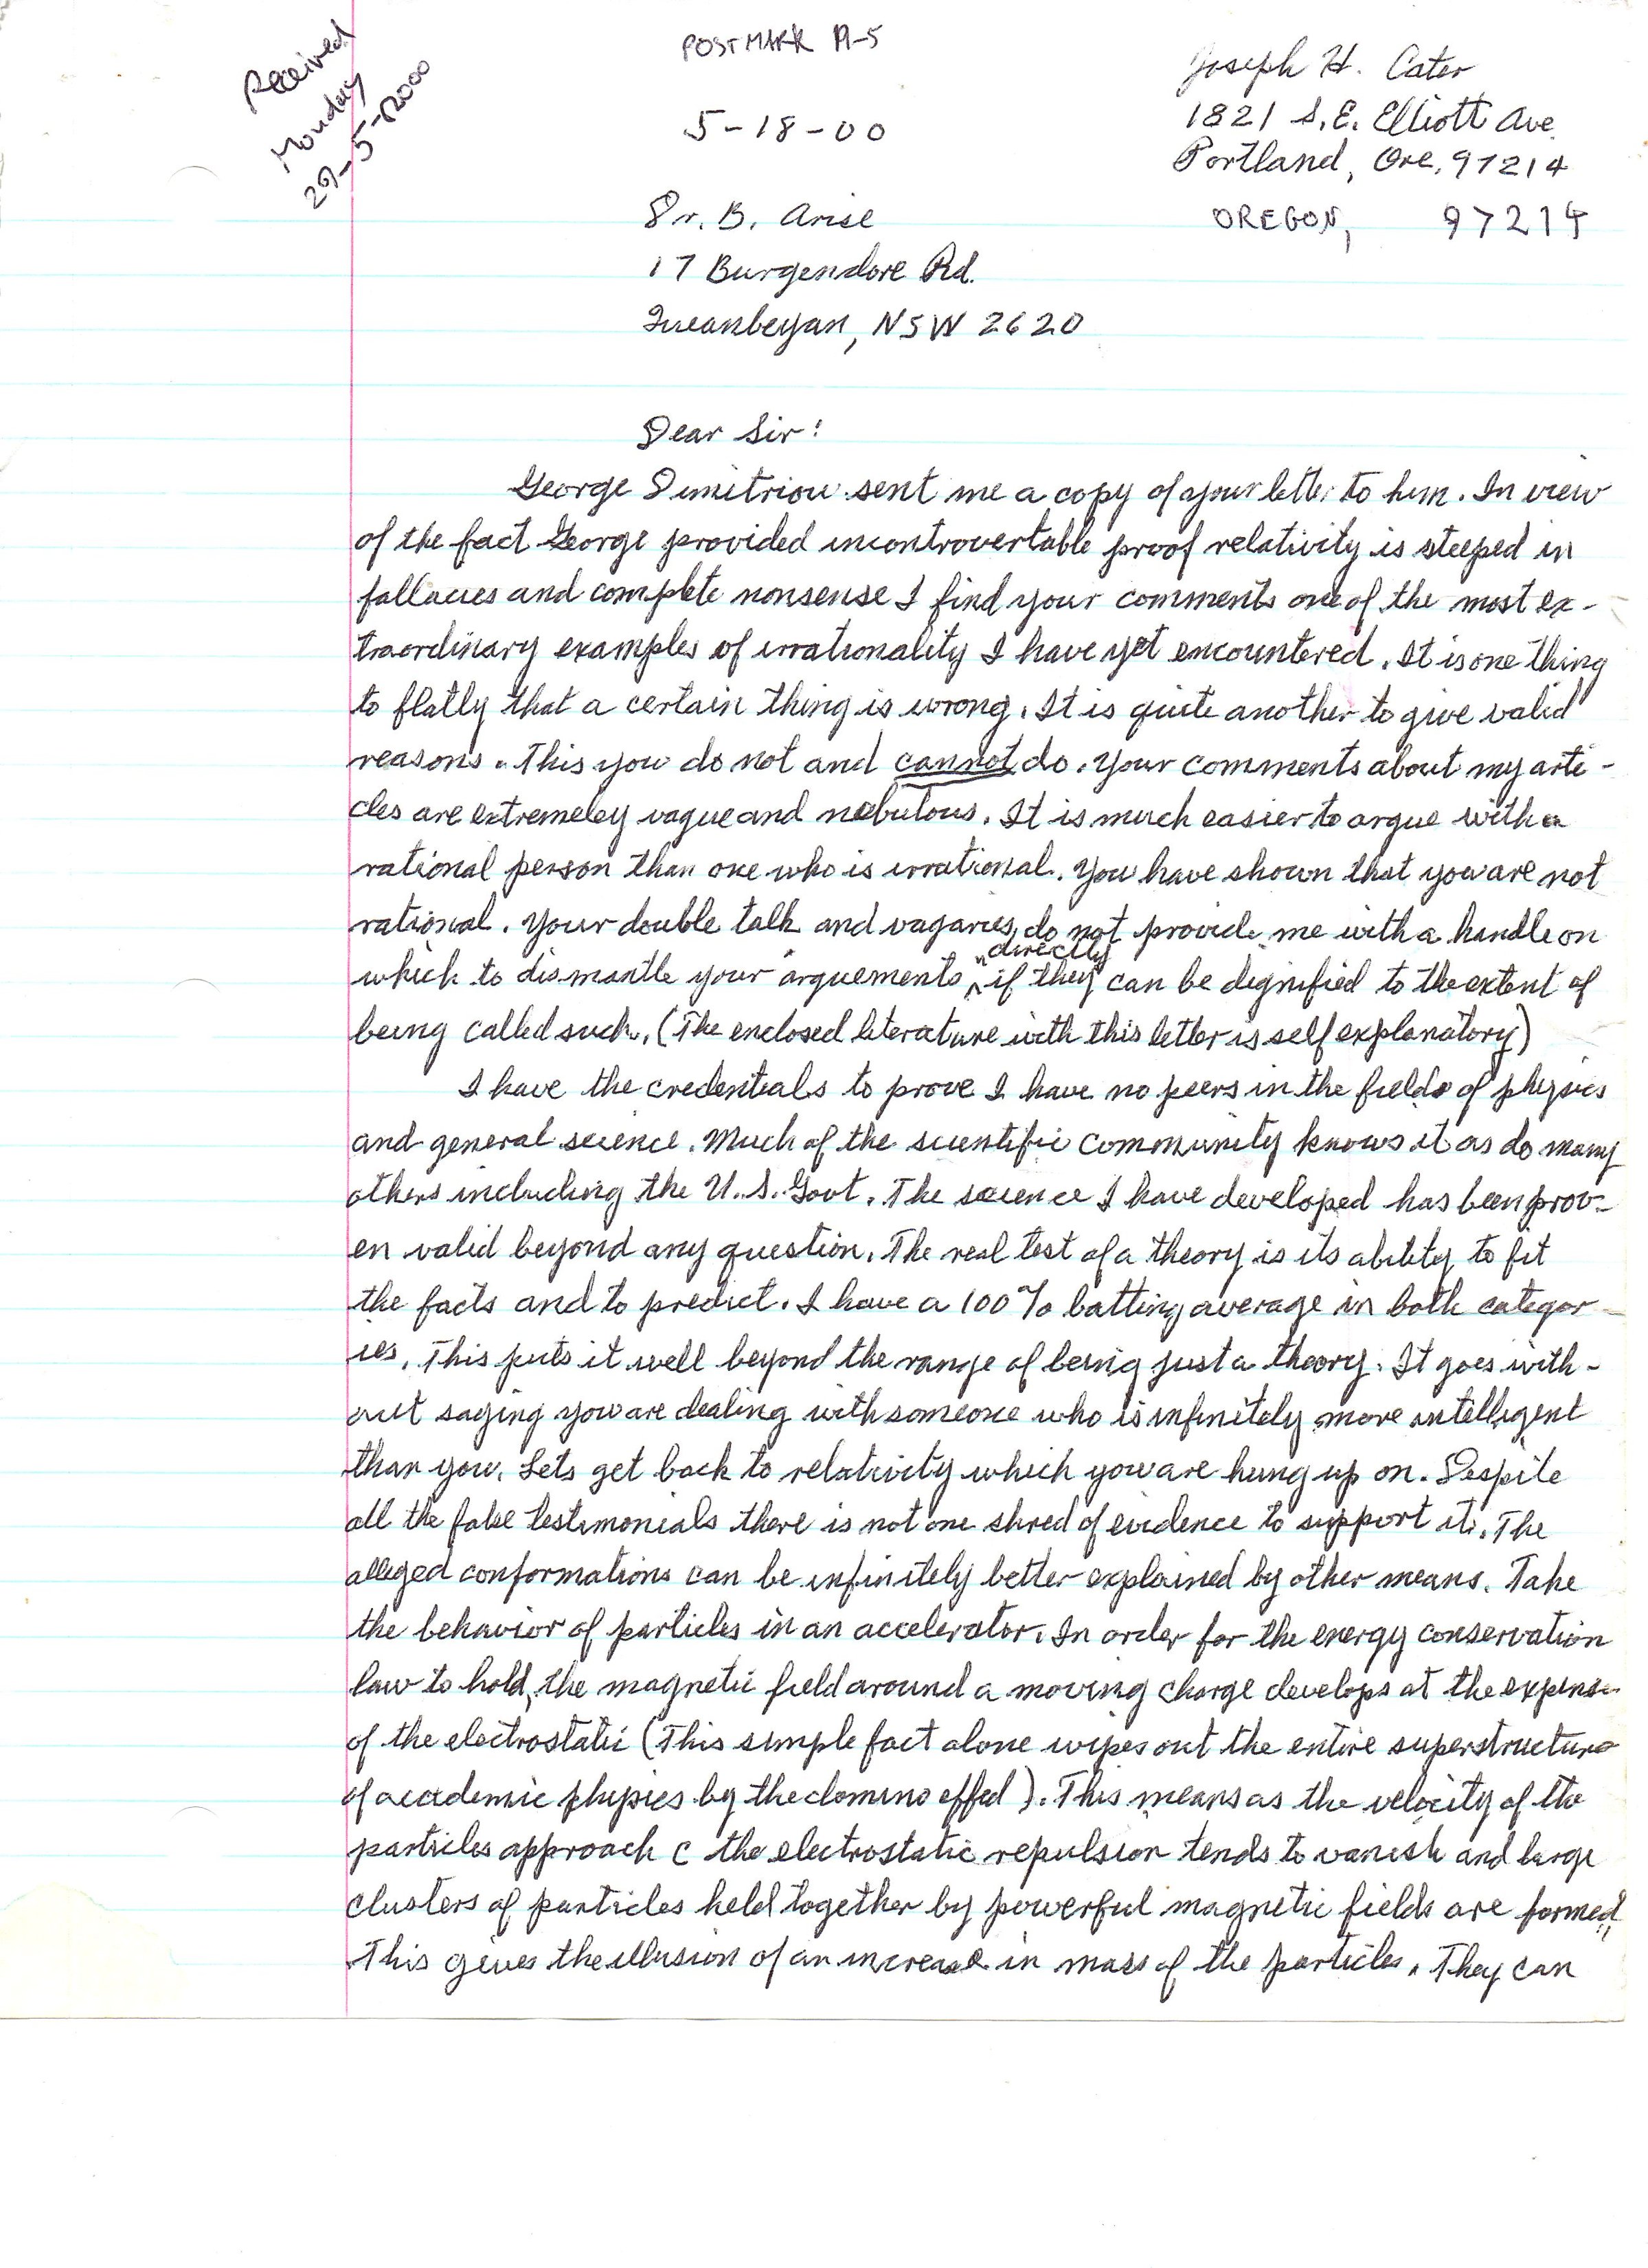 Received
Monday
29-5-2000
POSTMARK A-5
5-18-00
Joseph H. Cater
1821 S.E. Elliott Ave.
Portland, Ore. 97214
OREGON, 97214
Dr. B. Arise
17 Burgendore Rd.
Queanbeyan, NSW 2620
Dear Sir:
George Dimitriou sent me a copy of your letter to him. In view
of the fact George provided incontrovertable proof relativity is steeped in
fallacies and complete nonsense I find your comments one of the most ex-
traordinary examples of irrationality I have yet encountered. It is one thing
to flatly that a certain thing is wrong. It is quite another to give valid
reasons. This you do not and cannot do. Your comments about my arti-
cles are extremeley vague and nebulous. It is much easier to argue with a
rational person than one who is irrational. You have shown that you are not
rational. Your double talk and vagaries do not provide me with a handle on
which to dismantle your arguements directly if they can be dignified to the extent of
being called such. (The enclosed literature with this letter is self explanatory)
I have the credentials to prove I have no peers in the fields of physics
and general science. Much of the scientific community knows it as do many
others including the U.S. Govt. The science I have developed has been prov-
en valid beyond any question. The real test of a theory is its ability to fit
the facts and to predict. I have a 100% batting average in both categor-
ies. This puts it well beyond the range of being just a theory. It goes with-
out saying you are dealing with someone who is infinitely more intelligent
than you. Lets get back to relativity which you are hung up on. Despite
all the false testimonials there is not one shred of evidence to support it. The
alleged conformations can be infinitely better explained by other means. Take
the behavior of particles in an accelerator. In order for the energy conservation
law to hold, the magnetic field around a moving charge develops at the expense
of the electrostatic (This simple fact alone wipes out the entire superstructure
of academic physics by the domino effect). This means as the velocity of the
particles approach c the electrostatic repulsion tends to vanish and large
clusters of particles held together by powerful magnetic fields are formed.
This gives the illusion of an increase in mass of the particles. They can